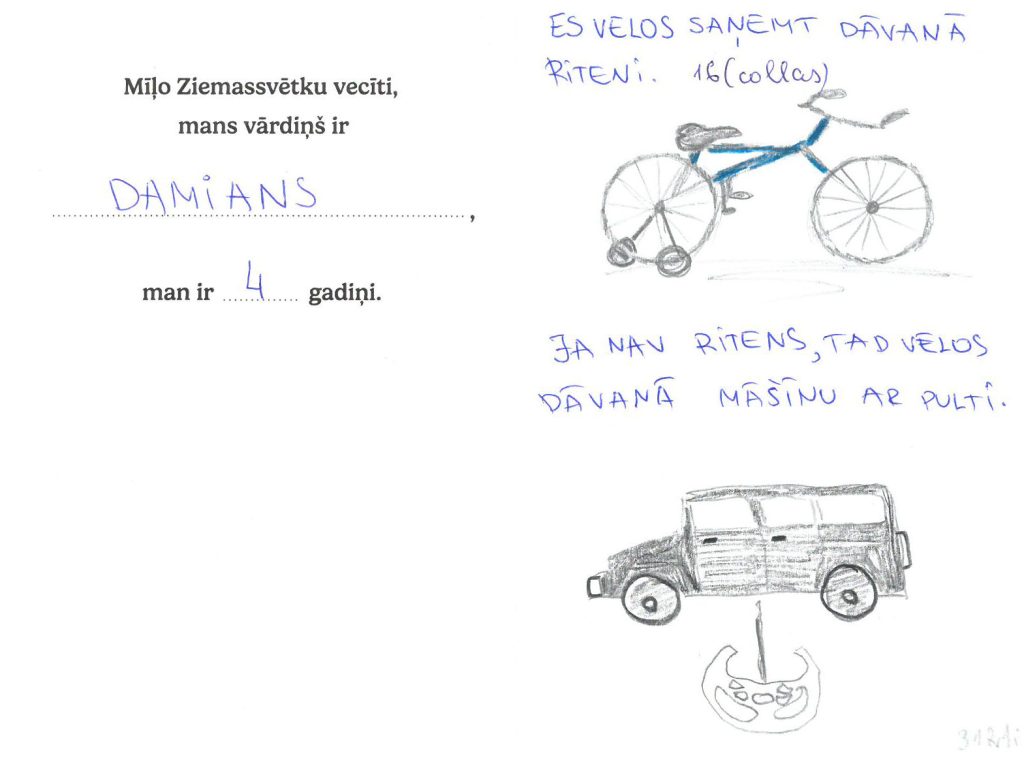 Mīļo Ziemassvētku vecīti,
mans vārdiņš ir
DAMiANS,
man ir 4 gadiņi.
ES VĒLOS SAŅEMT DĀVANĀ
RiTENi. 16 (collas)
JA NAV RiTENS, TAD VĒLOS
DĀVANĀ MĀŠĪNU AR PULTi.